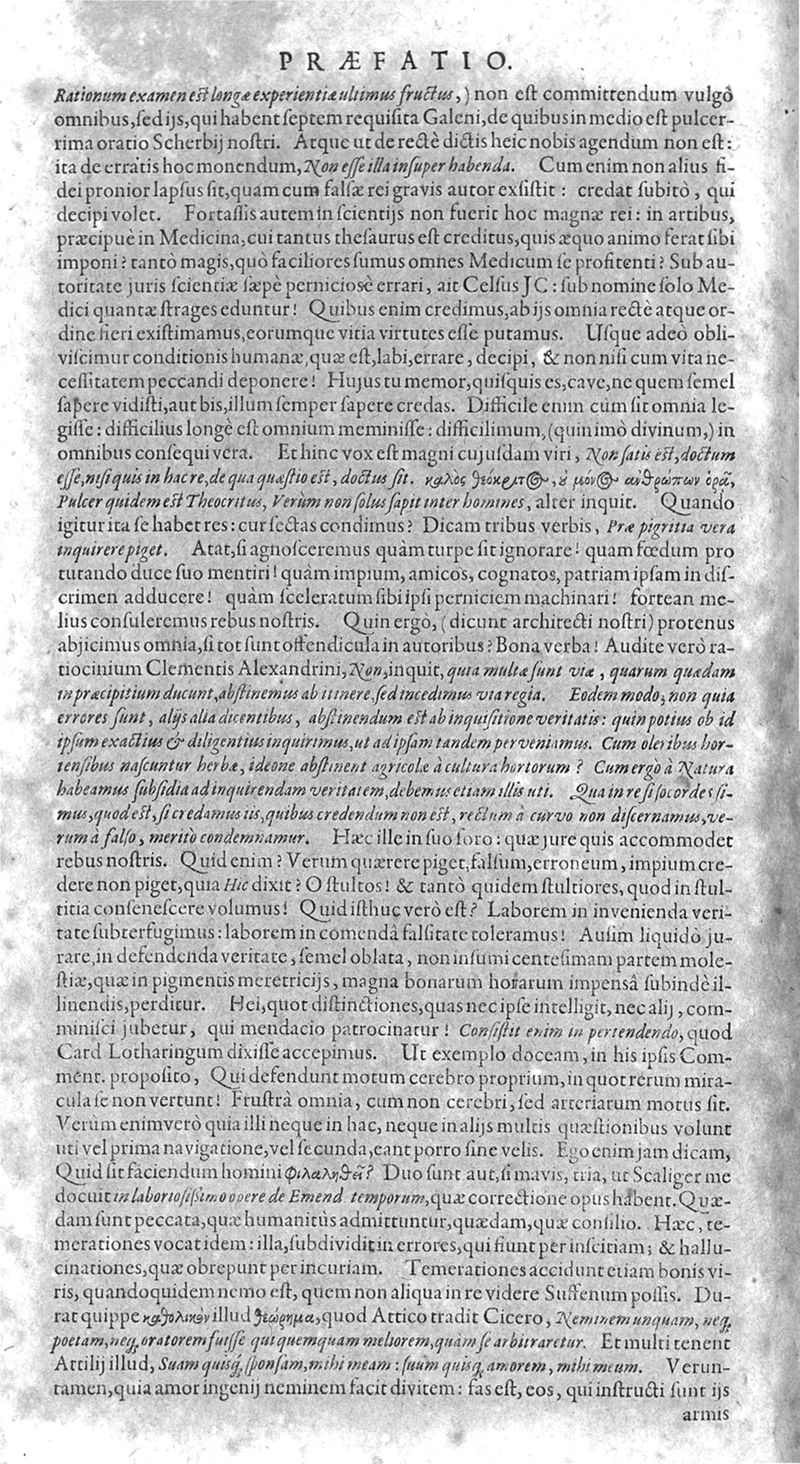 PRÆFATIO.
Rationum examen est longæ experientiæ ultimus fructus,) non eſt committendum vulgò
omnibus, ſed ijs, qui habent ſeptem requiſita Galeni, de quibus in medio eſt pulcer-
rima oratio Scherbij noſtri. Atque ut de rectè dictis heic nobis agendum non eſt:
ita de erratis hoc monendum, Non eſſe illa inſuper habenda. Cum enim non alius fi-
dei pronior lapſus ſit, quam cum falſæ rei gravis autor exſiſtit: credat ſubitò, qui
decipi volet. Fortaſſis autem in ſcientijs non fuerit hoc magnæ rei: in artibus,
præcipuè in Medicina, cui tantus theſaurus eſt creditus, quis æquo animo ferat ſibi
imponi? tantò magis, quò faciliores ſumus omnes Medicum ſe profitenti? Sub au-
toritate juris ſcientiæ ſæpè pernicioſè errari, ait Celſus JC: ſub nomine ſolo Me-
dici quantæ ſtrages eduntur! Quibus enim credimus, ab ijs omnia rectè atque or-
dine fieri exiſtimamus, eorumque vitia virtutes eſſe putamus. Uſque adeò obli-
viſcimur conditionis humanæ, quæ eſt, labi, errare, decipi, & non niſi cum vita ne-
ceſſitatem peccandi deponere! Hujus tu memor, quiſquis es, cave, ne quem ſemel
ſapere vidiſti, aut bis, illum ſemper ſapere credas. Difficile enim cùm ſit omnia le-
giſſe: difficilius longè eſt omnium meminiſſe: difficilimum, (quin imò divinum,) in
omnibus conſequi vera. Et hinc vox eſt magni cujuſdam viri, Non ſatis eſt, doctum
eſſe, niſi quis in hac re, de qua quæſtio eſt, doctus ſit. καλὸς Θεόκριτ@, ȣ́ μόν@ ἀνθρώπων ὁρᾷ,
Pulcer quidem eſt Theocritus, Verùm non ſolus ſapit inter homines, alter inquit. Quando
igitur ita ſe habet res: cur ſectas condimus? Dicam tribus verbis, Præ pigritia vera
inquirere piget. Atat, ſi agnoſceremus quàm turpe ſit ignorare! quam fœdum pro
tutando duce ſuo mentiri! quàm impium, amicos, cognatos, patriam ipſam in diſ-
crimen adducere! quàm ſceleratum ſibi ipſi perniciem machinari! fortean me-
lius conſuleremus rebus noſtris. Quin ergò, (dicunt architecti noſtri) protenus
abjicimus omnia, ſi tot ſunt offendicula in autoribus? Bona verba! Audite verò ra-
tiocinium Clementis Alexandrini, Non, inquit, quia multæ ſunt viæ, quarum quædam
in præcipitium ducunt, abſtinemus ab itinere, ſed incedimus via regia. Eodem modo, non quia
errores ſunt, alijs alia dicentibus, abſtinendum eſt ab inquiſitione veritatis: quin potius ob id
ipſum exactius & diligentius inquirimus, ut ad ipſam tandem perveniamus. Cum oleribus hor-
tenſibus naſcuntur herbæ, ideone abſtinent agricolæ à cultura hortorum? Cum ergò à Natura
habeamus ſubſidia ad inquirendam veritatem, debemus etiam illis uti. Qua in re ſi ſocordes ſi-
mus, quod eſt, ſi credamus iis, quibus credendum non eſt, rectum à curvo non diſcernamus, ve-
rum à falſo, meritò condemnamur. Hæc ille in ſuo foro: quæ jure quis accommodet
rebus noſtris. Quid enim? Verum quærere piget, falſum, erroneum, impium cre-
dere non piget, quia Hic dixit? O ſtultos! & tantò quidem ſtultiores, quod in ſtul-
titia conſeneſcere volumus! Quid iſthuc verò eſt? Laborem in invenienda veri-
tate ſubterfugimus: laborem in comendâ falſitate toleramus! Auſim liquidò ju-
rare, in defendenda veritate, ſemel oblata, non inſumi centeſimam partem mole-
ſtiæ, quæ in pigmentis meretricijs, magna bonarum horarum impensâ ſubindè il-
linendis, perditur. Hei, quot diſtinctiones, quas nec ipſe intelligit, nec alij, com-
miniſci jubetur, qui mendacio patrocinatur! Conſiſtit enim in pertendendo, quod
Card Lotharingum dixiſſe accepimus. Ut exemplo doceam, in his ipſis Com-
ment. propoſito, Qui defendunt motum cerebro proprium, in quot rerum mira-
cula ſe non vertunt! Fruſtrà omnia, cum non cerebri, ſed arteriarum motus ſit.
Verùm enimverò quia illi neque in hac, neque in alijs multis quæſtionibus volunt
uti vel prima navigatione, vel ſecunda, eant porro ſine velis. Ego enim jam dicam,
Quid ſit faciendum homini φιλαλήθει? Duo ſunt aut, ſi mavis, tria, ut Scaliger me
docuit in laborioſißimo opere de Emend temporum, quæ correctione opus habent. Quæ-
dam ſunt peccata, quæ humanitùs admittuntur, quædam, quæ conſilio. Hæc, te-
merationes vocat idem: illa, ſubdividit in errores, qui fiunt per inſcitiam; & hallu-
cinationes, quæ obrepunt per incuriam. Temerationes accidunt etiam bonis vi-
ris, quandoquidem nemo eſt, quem non aliqua in re videre Suffenum poſſis. Du-
rat quippe καθολικὸν illud θεώρημα, quod Attico tradit Cicero, Neminem unquam, neq;
poetam, neq; oratorem fuiſſe qui quemquam meliorem, quàm ſe arbitraretur. Et multi tenent
Attilij illud, Suam quisq; ſponſam, mihi meam: ſuum quisq; amorem, mihi meum. Verun-
tamen, quia amor ingenij neminem facit divitem: fas eſt, eos, qui inſtructi ſunt ijs
armis